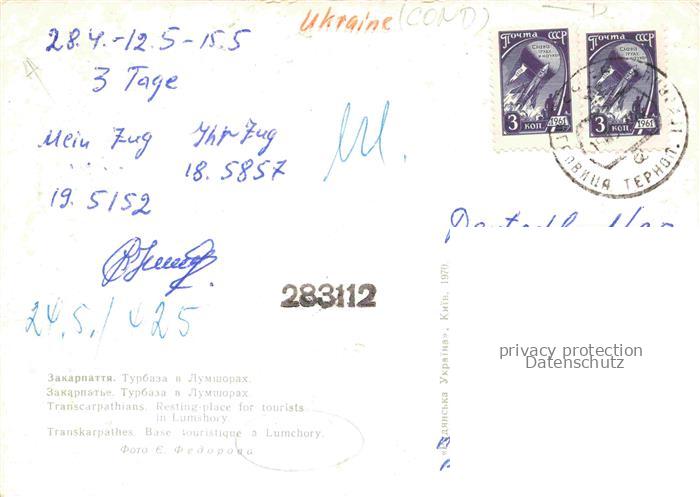 Ukraine (COND)
28.4.-12.5-15.5
3 Tage
Mein Zug Ihr Zug
18. 5857
19. 5152
24.5./425
283112
ПОЧТА СССР
СЛАВА
ТРУДУ
И НАУКЕ
3 КОП 1961
ПОЧТА СССР
СЛАВА
ТРУДУ
И НАУКЕ
3 КОП 1961
ТЕРНОП.
privacy protection
Datenschutz
«Радянська Україна». Київ. 1970.
Закарпаття. Турбаза в Лумшорах.
Закарпатье. Турбаза в Лумшорах.
Transcarpathians. Resting-place for tourists
in Lumshory.
Transkarpathes. Base touristique a Lumchory.
Фото Є. Федорова